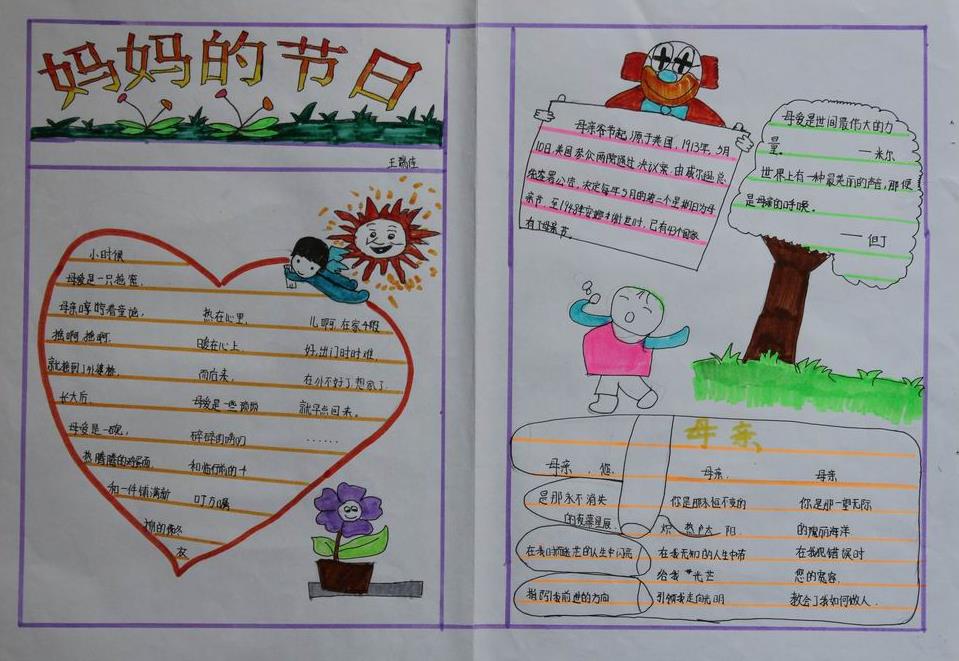 妈妈的节日
小时候
母爱是一只摇篮,
母亲哼着童谣,
摇啊,摇啊.
就摇到了外婆桥.
长大后,
母爱是一碗,
热腾腾的鸡蛋面,
和一件铺满新
棉的
衣
热在心里,
暖在心上,
而后来,
母爱是一些琐琐
碎碎的唠叨
和临行前的千
叮万嘱
儿啊,在家千般
好,出门时时难,
在外不好了,想家了
就早点回来。
……
母亲节节起源于美国,1913年,5月
10日,美国参众两院通过决议案,由威尔逊总
统签署公告,决定每年5月的第二个星期日为母
亲节.至1948年安娜 谢世时,已有43个国家
有了母亲节。
母爱是世间最伟大的力
量。 ——米尔
世界上有一种最美丽的声音,那便
是母亲的呼唤。
——但丁
母亲
母亲,您
是那永不消失
的夜幕星辰
在我 茫的人生中闪亮
指引我前进的方向
母亲,
你是那永恒不变的
炽热 太阳
在我无知的人生中带
给我 光芒
引领我走向光明
母亲
你是那一望无际
的魔丽海洋
在我犯错误时
您的宽容,
教会了我如何做人.